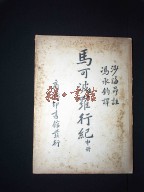 沙海昂註
馮承鈞譯
馬可波羅行紀 中冊
商務印書館發行